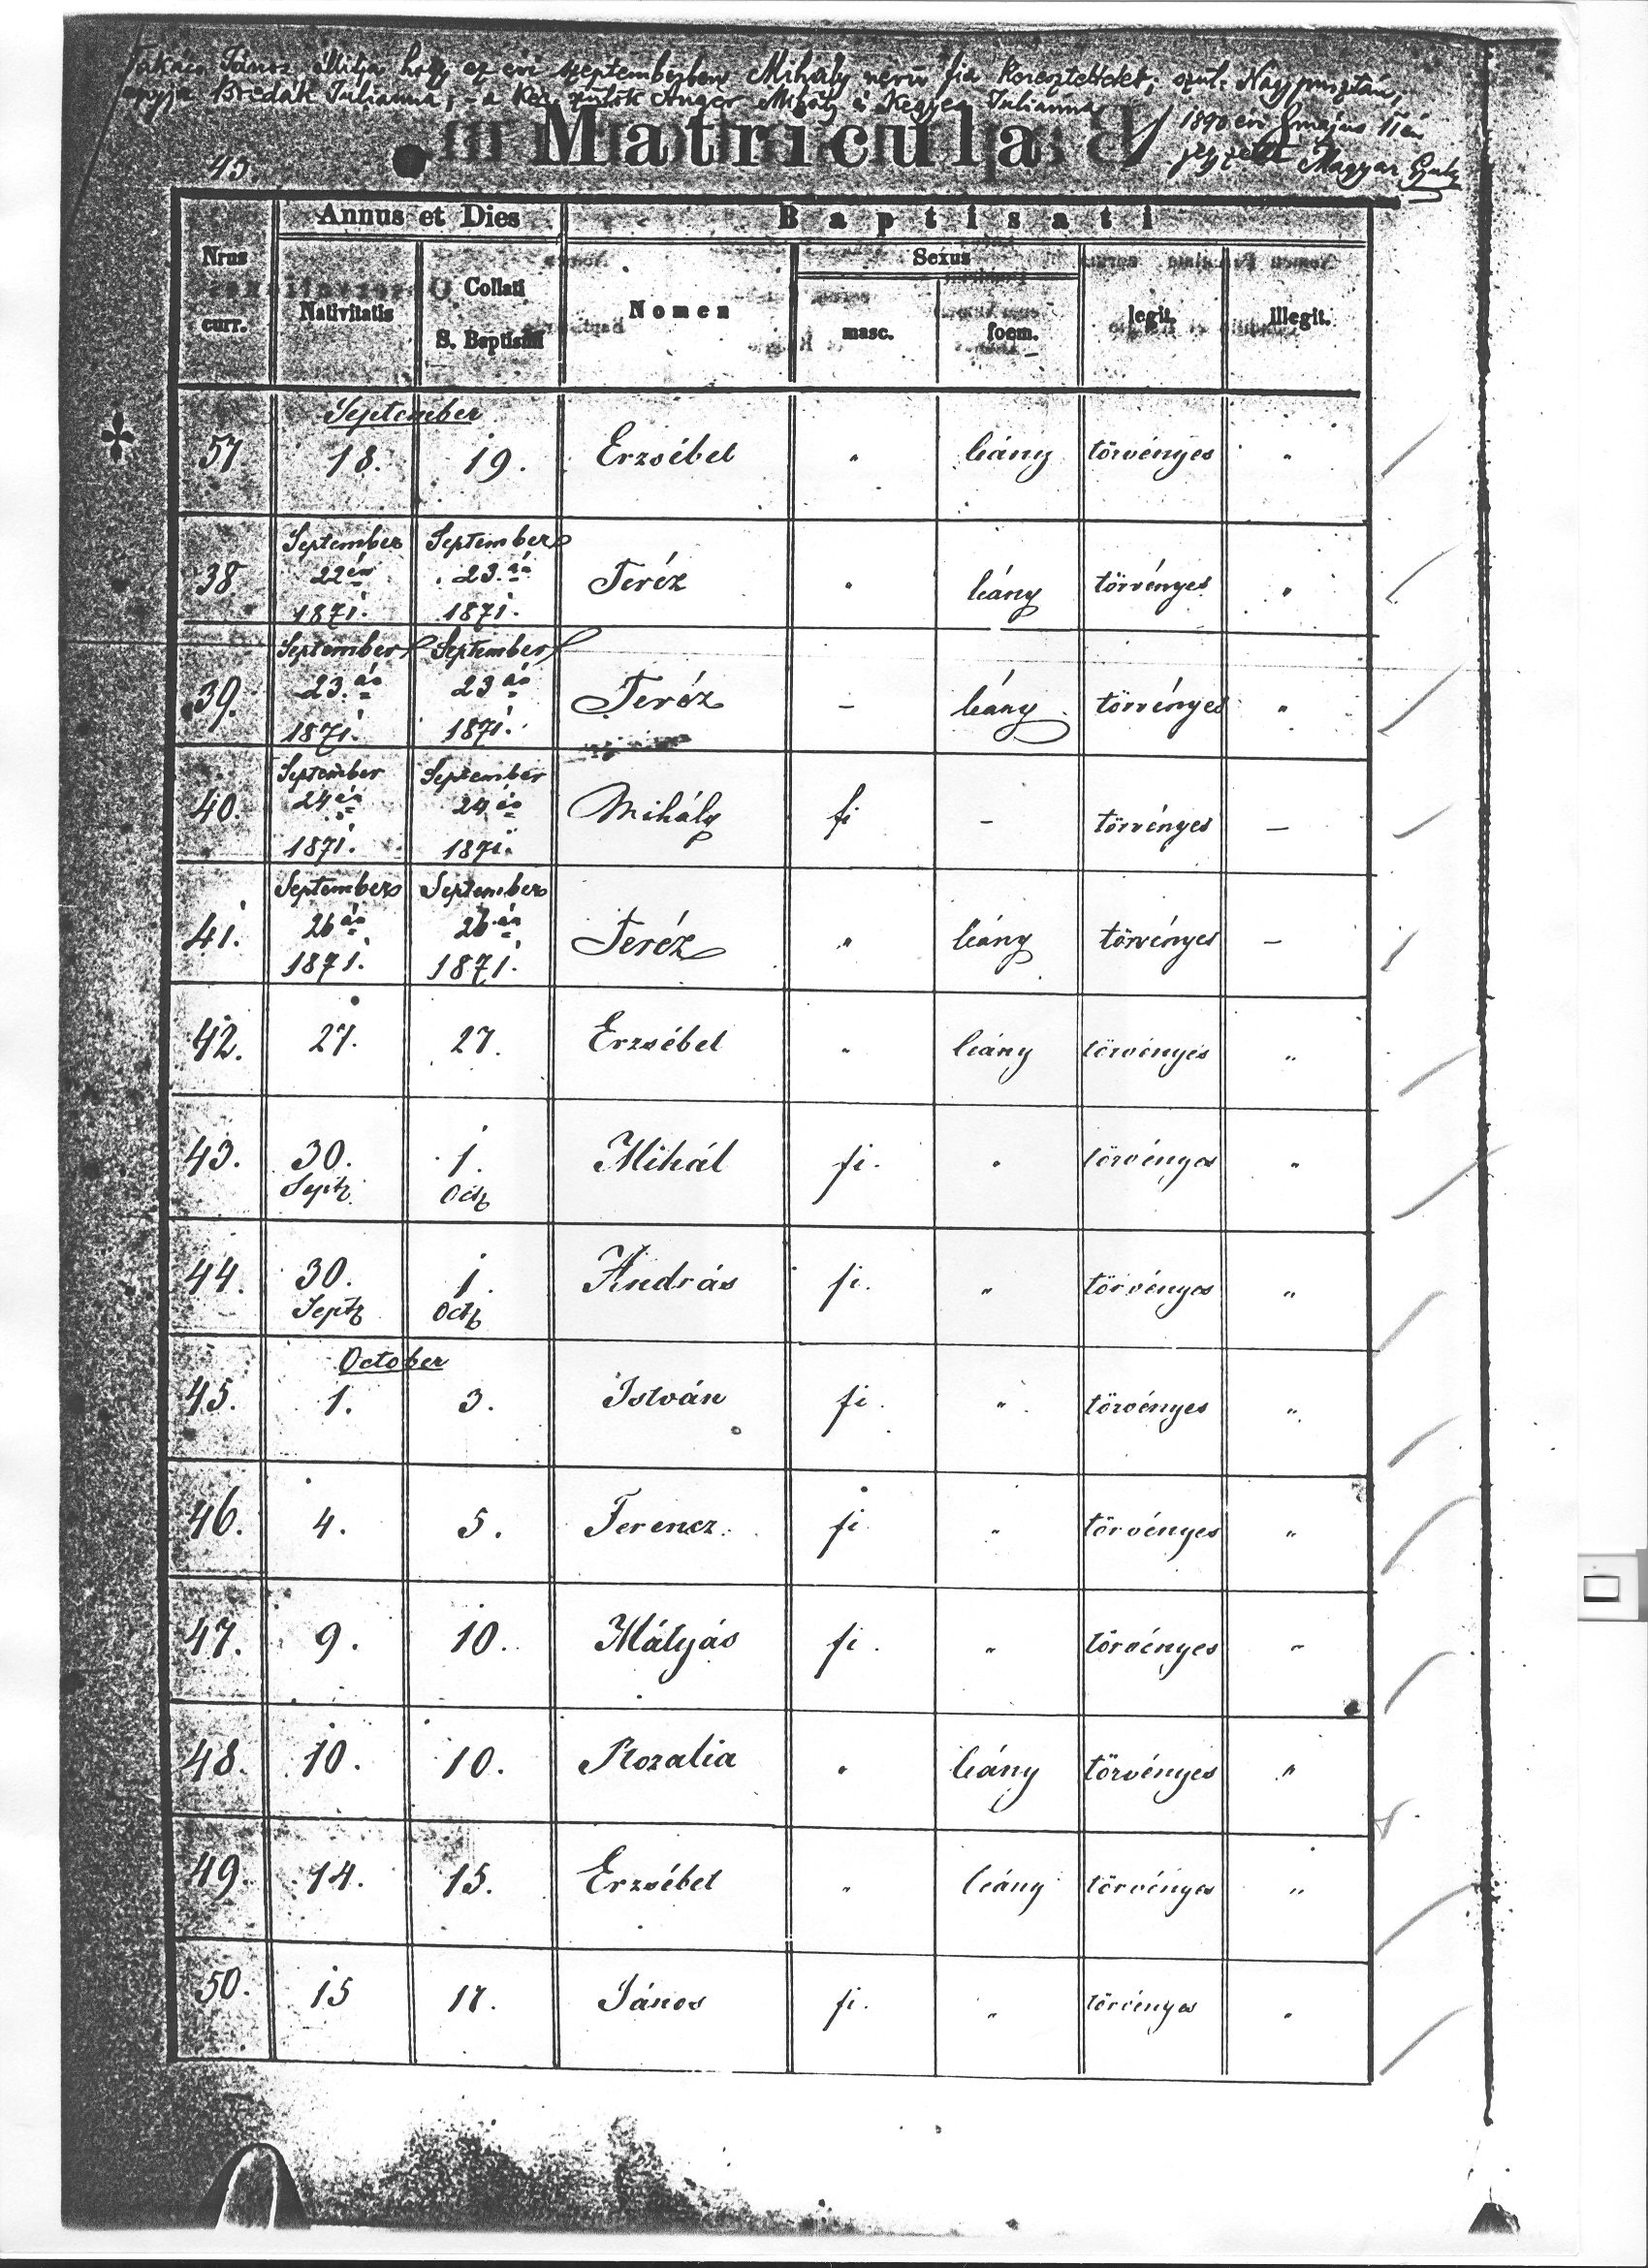 Takács János állitja hogy ez évi szeptemberben Mihály nevü fia kereszteltetett, szül. Nagypusztán,
anyja Bredák Julianna; - a ker. szülők Anger Mihály és Kegyes Julianna
1890 évi május 11én
jegyzette Magyar Gyula
43.
Matricula
Nrus curr.
Annus et Dies
Baptisati
Nativitatis
Collati S. Baptismi
Nomen
Sexus
masc.
foem.
legit.
illegit.
September
37 18. 19. Erzsébet " leány törvényes "
September September
38 22én 23.án Teréz " leány törvényes "
1871. 1871.
September September
39. 23.án 23án Teréz – leány törvényes "
1871. 1871.
September September
40. 24én 24én Mihály fi – törvényes –
1871. 1871.
September September
41. 26án 26án Teréz " leány törvényes –
1871. 1871.
42. 27. 27. Erzsébet " leány törvényes "
43. 30. 1. Mihál fi. " törvényes "
Septb Octb
44. 30. 1. András fi. " törvényes "
Septb Octb
October
45. 1. 3. István fi. " törvényes "
46. 4. 5. Ferencz fi " törvényes "
47. 9. 10. Mátyás fi. " törvényes "
48. 10. 10. Rozalia " leány törvényes "
49. 14. 15. Erzsébet " leány törvényes "
50. 15 17. János fi. " törvényes "